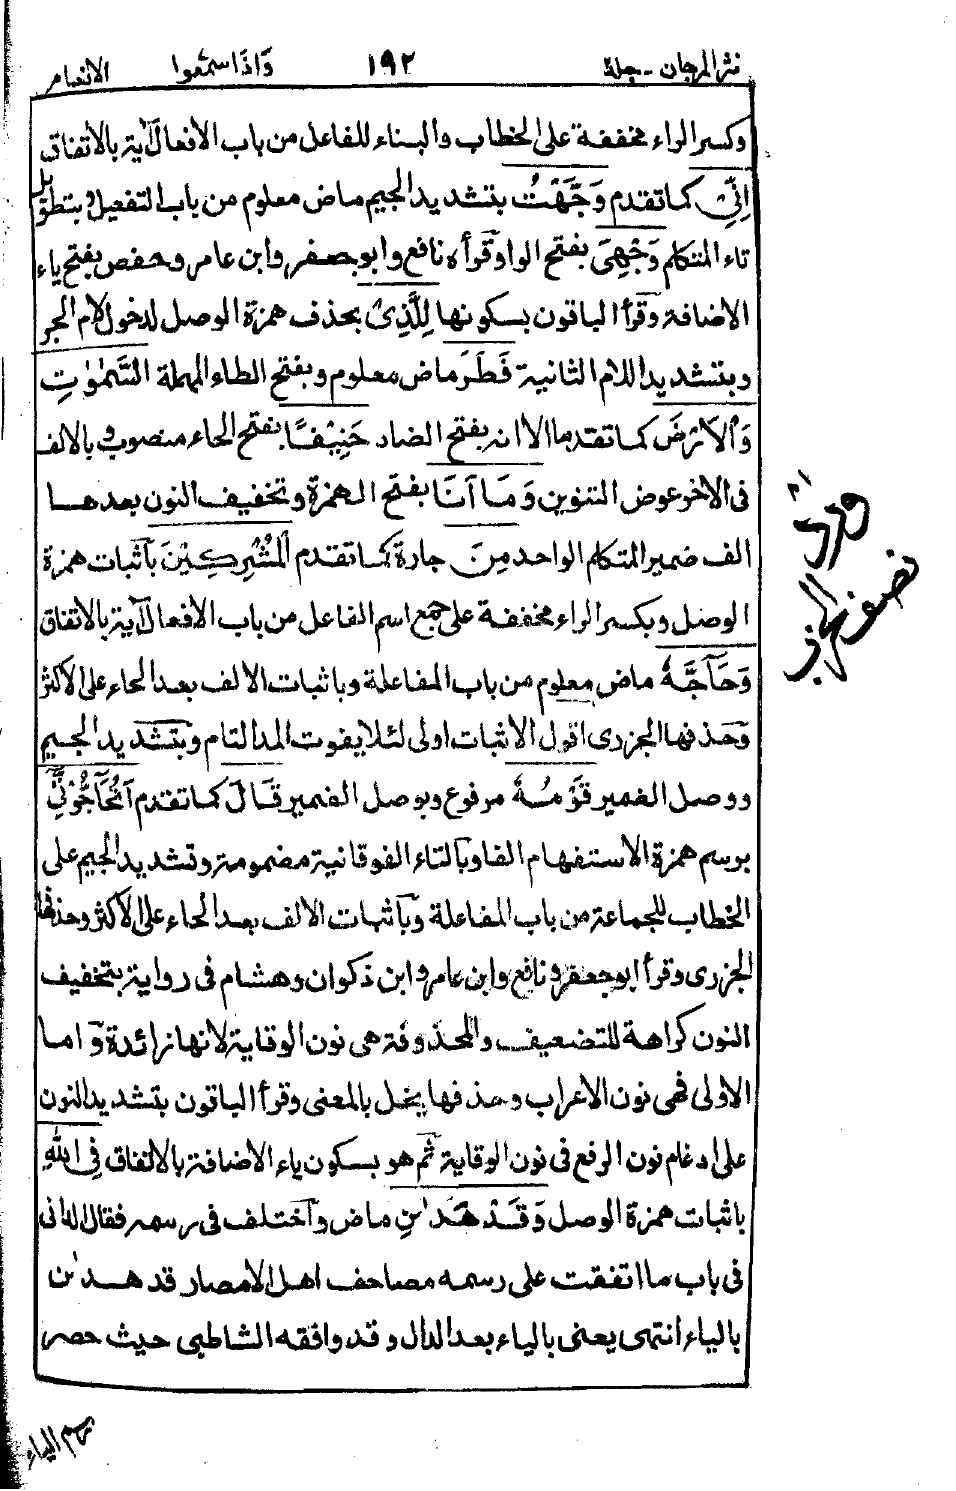 نثر المرجان - جلد
١٩٢
وَاذَا سمَعوا
الانعام
وكسر الراء مخففة على الخطاب والبناء للفاعل من باب الافعال آية بالاتفاق
اِنِّىْ كما تقدم وَجَّهْتُ بتشديد الجيم ماض معلوم من باب التفعيل و بتطويل
تاء المتكلم وَجْهِىَ بفتح الواو قرأه نافع وابو جعفر وابن عامر وحفص بفتح ياء
الاضافة وقرأ الباقون بسكونها لِلَّذِىْ بحذف همزة الوصل لدخول لام الجر
وبتشديد اللام الثانية فَطَرَ ماض معلوم وبفتح الطاء المهملة السَّمٰوٰتِ
وَالْاَرْضَ كما تقدم الا انه بفتح الضاد حَنِيْفًا بفتح الحاء منصوب وبالالف
فى الاخر عوض التنوين وَمَا اَنَا بفتح الهمزة وتخفيف النون بعدها
الف ضمير المتكلم الواحد مِنَ جارة كما تقدم الْمُشْرِكِيْنَ باثبات همزة
الوصل وبكسر الراء مخففة على جمع اسم الفاعل من باب الافعال آية بالاتفاق
وَحَآجَّهٗ ماض معلوم من باب المفاعلة وباثبات الالف بعد الحاء على الاكثر
وحذفها الجزرى اقول الاثبات اولى لئلا يفوت المد التام وبتشديد الجيم
ووصل الضمير قَوْمُهٗ مرفوع وبوصل الضمير قَالَ كما تقدم اَتُحَآجُّوْنِّىْ
برسم همزة الاستفهام الفا وبالتاء الفوقانية مضمومة وتشديد الجيم على
الخطاب للجماعة من باب المفاعلة وباثبات الالف بعد الحاء على الاكثر وحذفها
الجزرى وقرأ ابو جعفر ونافع وابن عامر وابن ذكوان وهشام فى رواية بتخفيف
النون كراهة للتضعيف والمحذوفة هى نون الوقاية لانها زائدة واما
الاولى فهى نون الاعراب وحذفها يخل بالمعنى وقرأ الباقون بتشديد النون
على ادغام نون الرفع فى نون الوقاية ثم هو بسكون ياء الاضافة بالاتفاق فِى اللّٰهِ
باثبات همزة الوصل وَقَدْ هَدٰىنِ ماض واختلف فى رسمه فقال الدانى
فى باب ما اتفقت على رسمه مصاحف اهل الامصار قد هدٰىن
بالياء انتهى يعنى بالياء بعد الدال وقد وافقه الشاطبى حيث حصر
رسم الياء